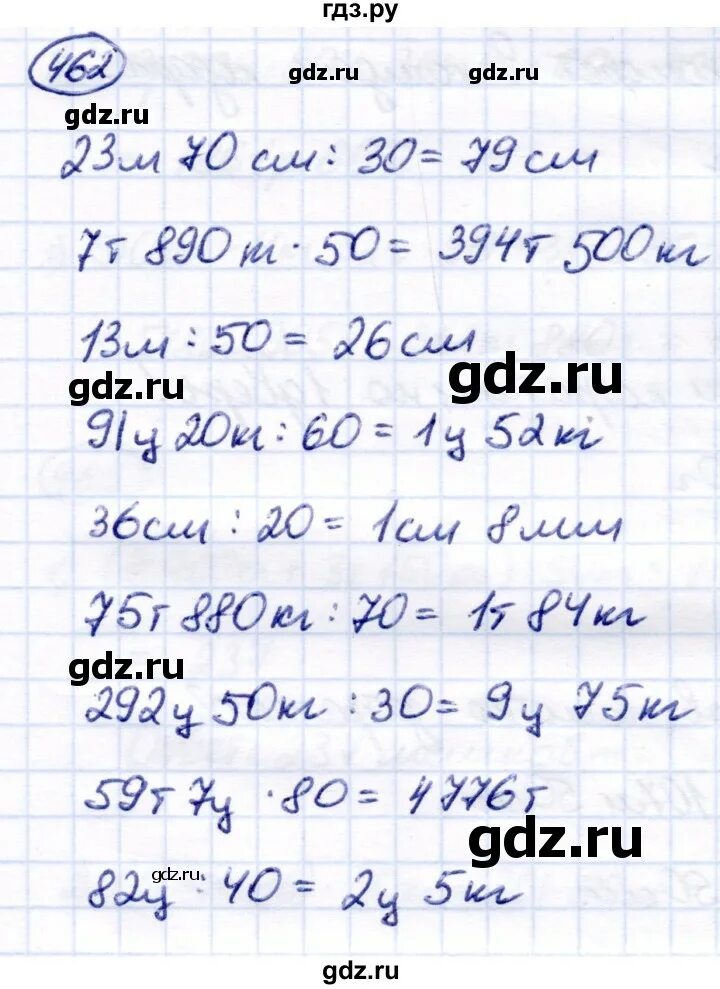 гдз.ру
462
gdz.ru
gdz.ru
23м 70 см : 30 = 79 см
7т 890 т · 50 = 394т 500кг
13м : 50 = 26 см
gdz.ru
gdz.ru
91ц 20кг : 60 = 1ц 52кг
36см : 20 = 1см 8мм
75т 880кг : 70 = 1т 84кг
gdz.ru
292ц 50кг : 30 = 9ц 75кг
59т 7ц · 80 = 4776т
gdz.ru
gdz.ru
82ц : 40 = 2ц 5кг
gdz.ru